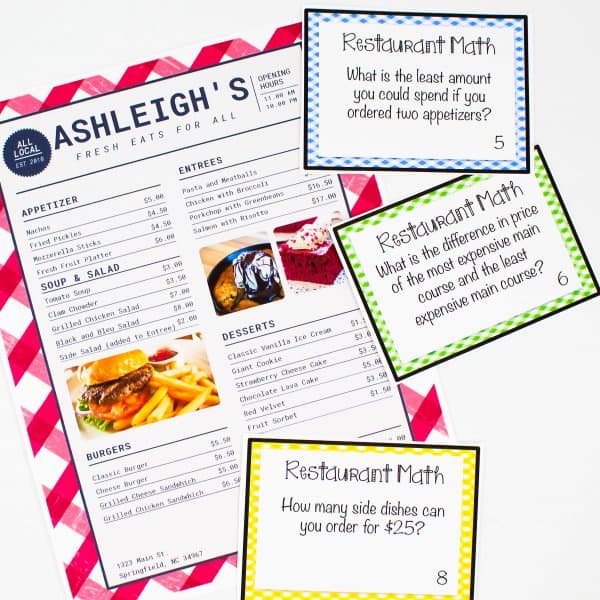 ASHLEIGH'S
FRESH EATS FOR ALL
ALL LOCAL
EST 2010
OPENING HOURS
11.00 AM
10.00 PM
APPETIZER
Nachos $5.00
Fried Pickles $4.50
Mozzerella Sticks $4.50
Fresh Fruit Platter $6.00
SOUP & SALAD
Tomato Soup $3.00
Clam Chowder $3.50
Grilled Chicken Salad $7.00
Black and Bleu Salad $8.00
Side Salad (added to Entree) $2.00
BURGERS
Classic Burger $5.50
Cheese Burger $6.50
Grilled Cheese Sandwhich $5.00
Grilled Chicken Sandwhich $6.50
1323 Main St.
Springfield, NC 34967
ENTREES
Pasta and Meatballs
Chicken with Broccoli
Porkchop with Greenbeans $16.50
Salmon with Risotto $17.00
DESSERTS
Classic Vanilla Ice Cream
Giant Cookie
Strawberry Cheese Cake
Chocolate Lava Cake $3.50
Red Velvet
Fruit Sorbet
Restaurant Math
What is the least amount
you could spend if you
ordered two appetizers?
5
Restaurant Math
What is the difference in price
of the most expensive main
course and the least
expensive main course?
6
Restaurant Math
How many side dishes can
you order for $25?
8